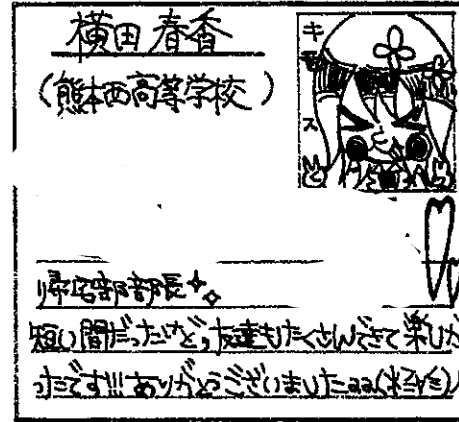 横田 春香
(熊本西高等学校)
キ
ス
帰宅部部長✧✧
短い間だったけど、友達もたくさんできて楽しか
ったです!!! ありがとうございました